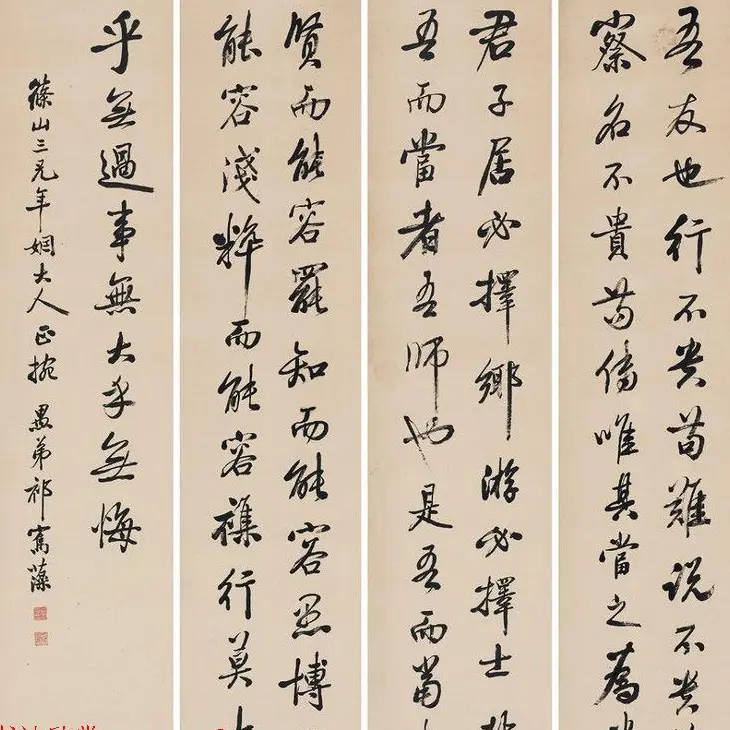 吾友也行不貴苟難說不貴
察名不貴苟傳唯其當之為
君子居必擇鄉游必擇士
吾而當者吾師也是吾而當
賢而能容罷知而能容愚博
能容淺粹而能容雜行莫
乎無過事無大乎無悔
篠山三兄年姻大人正捥 愚弟祁寯藻